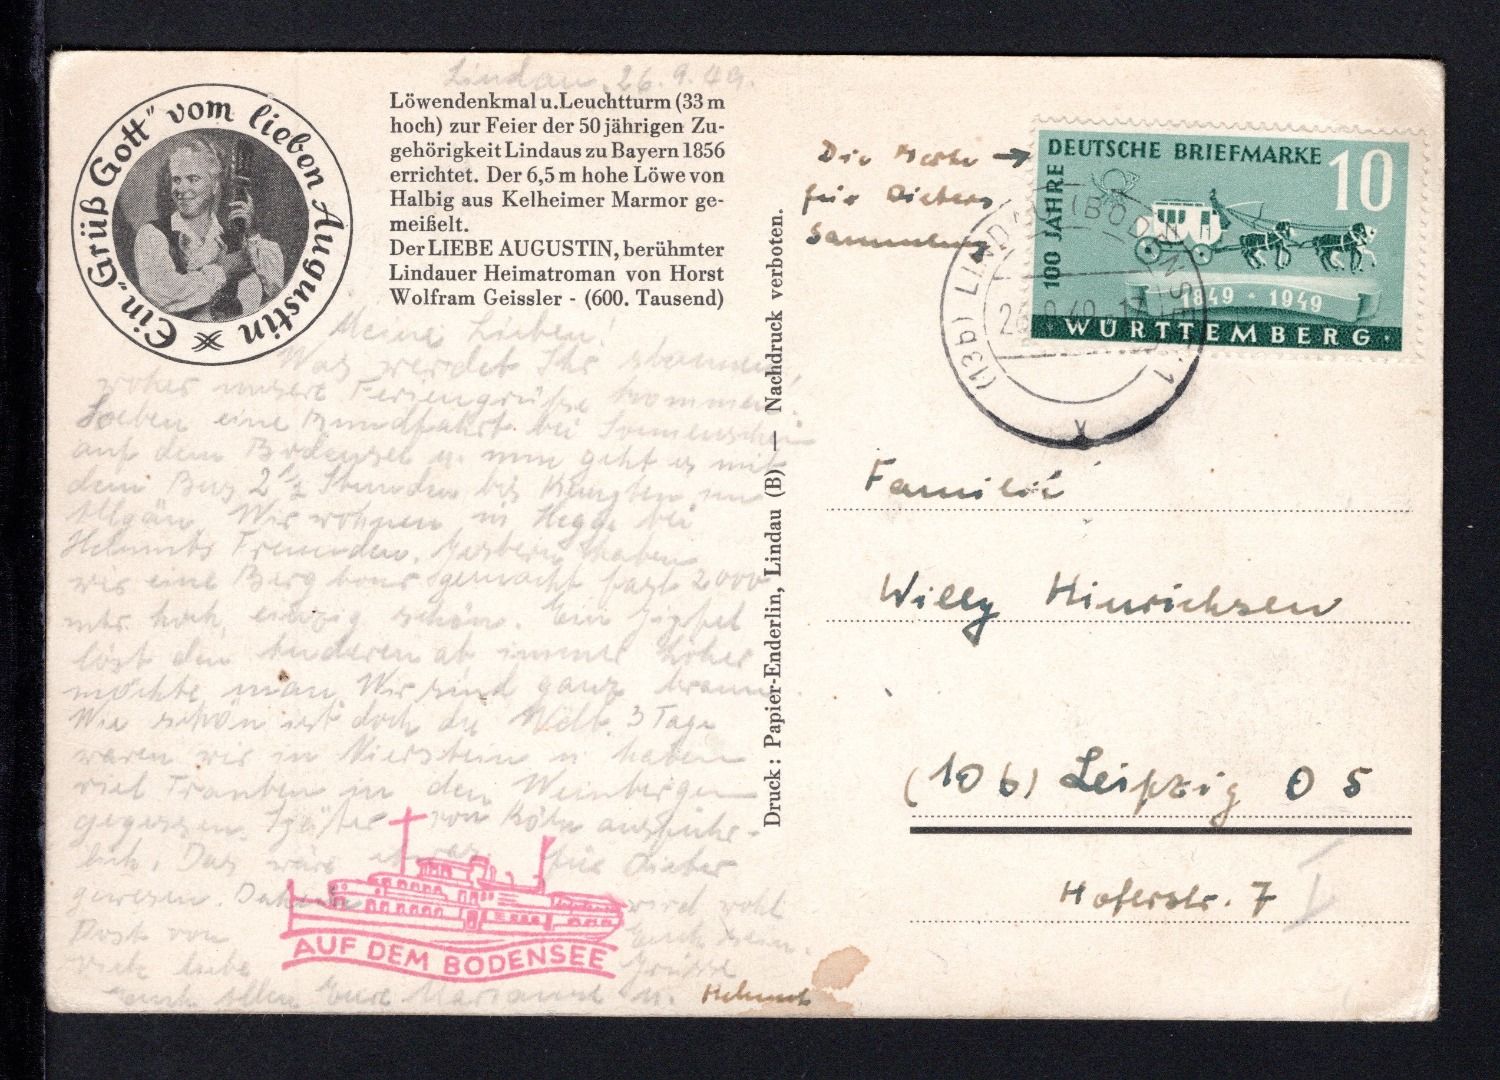 Ein „Grüß Gott" vom lieben Augustin
Lindau, 26.9.49.
Löwendenkmal u. Leuchtturm (33 m
hoch) zur Feier der 50 jährigen Zu-
gehörigkeit Lindaus zu Bayern 1856
errichtet. Der 6,5 m hohe Löwe von
Halbig aus Kelheimer Marmor ge-
meißelt.
Der LIEBE AUGUSTIN, berühmter
Lindauer Heimatroman von Horst
Wolfram Geissler - (600. Tausend)
Meine Lieben!
Was werdet Ihr staunen,
woher unsere Feriengrüße kommen.
Soeben eine Rundfahrt bei Sonnenschein
auf dem Bodensee u. nun geht es mit
dem Bus 2 1/2 Stunden bis Kempten im
Allgäu. Wir wohnen in Hegge bei
Helmuts Freunden. Gestern haben
wir eine Bergtour gemacht fast 2000
mtr hoch, einzig schön. Ein Gipfel
löst den anderen ab immer höher
möchte man. Wir sind ganz braun.
Wie schön ist doch die Welt. 3 Tage
waren wir in Nierstein u. haben
viel Trauben in den Weinbergen
gegessen. Später von Köln ausführ-
lich. Das wäre etwas für Dieter
gewesen. Daheim wird wohl
Post von Euch sein.
Viele liebe Grüsse
Euch allen Eure Marianne u. Helmut
AUF DEM BODENSEE
Druck: Papier-Enderlin, Lindau (B) — Nachdruck verboten.
Die Marke →
für Dieters
Sammlung
100 JAHRE DEUTSCHE BRIEFMARKE 10
1849 · 1949
WÜRTTEMBERG
(13b) LINDAU (BODENSEE) 1
26.9.49
Familie
Willy Hinrichsen
(10b) Leipzig O 5
Hoferstr. 7 I